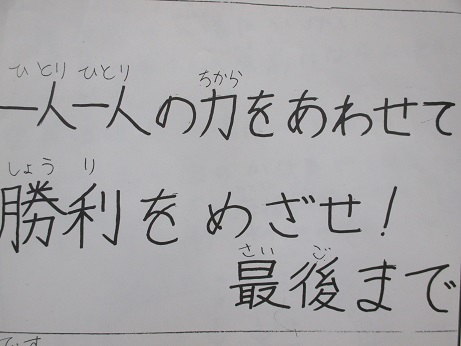 ひとり ひとり ちから
一人一人の力をあわせて
しょう り
勝利をめざせ!
さい ご
最後まで
です